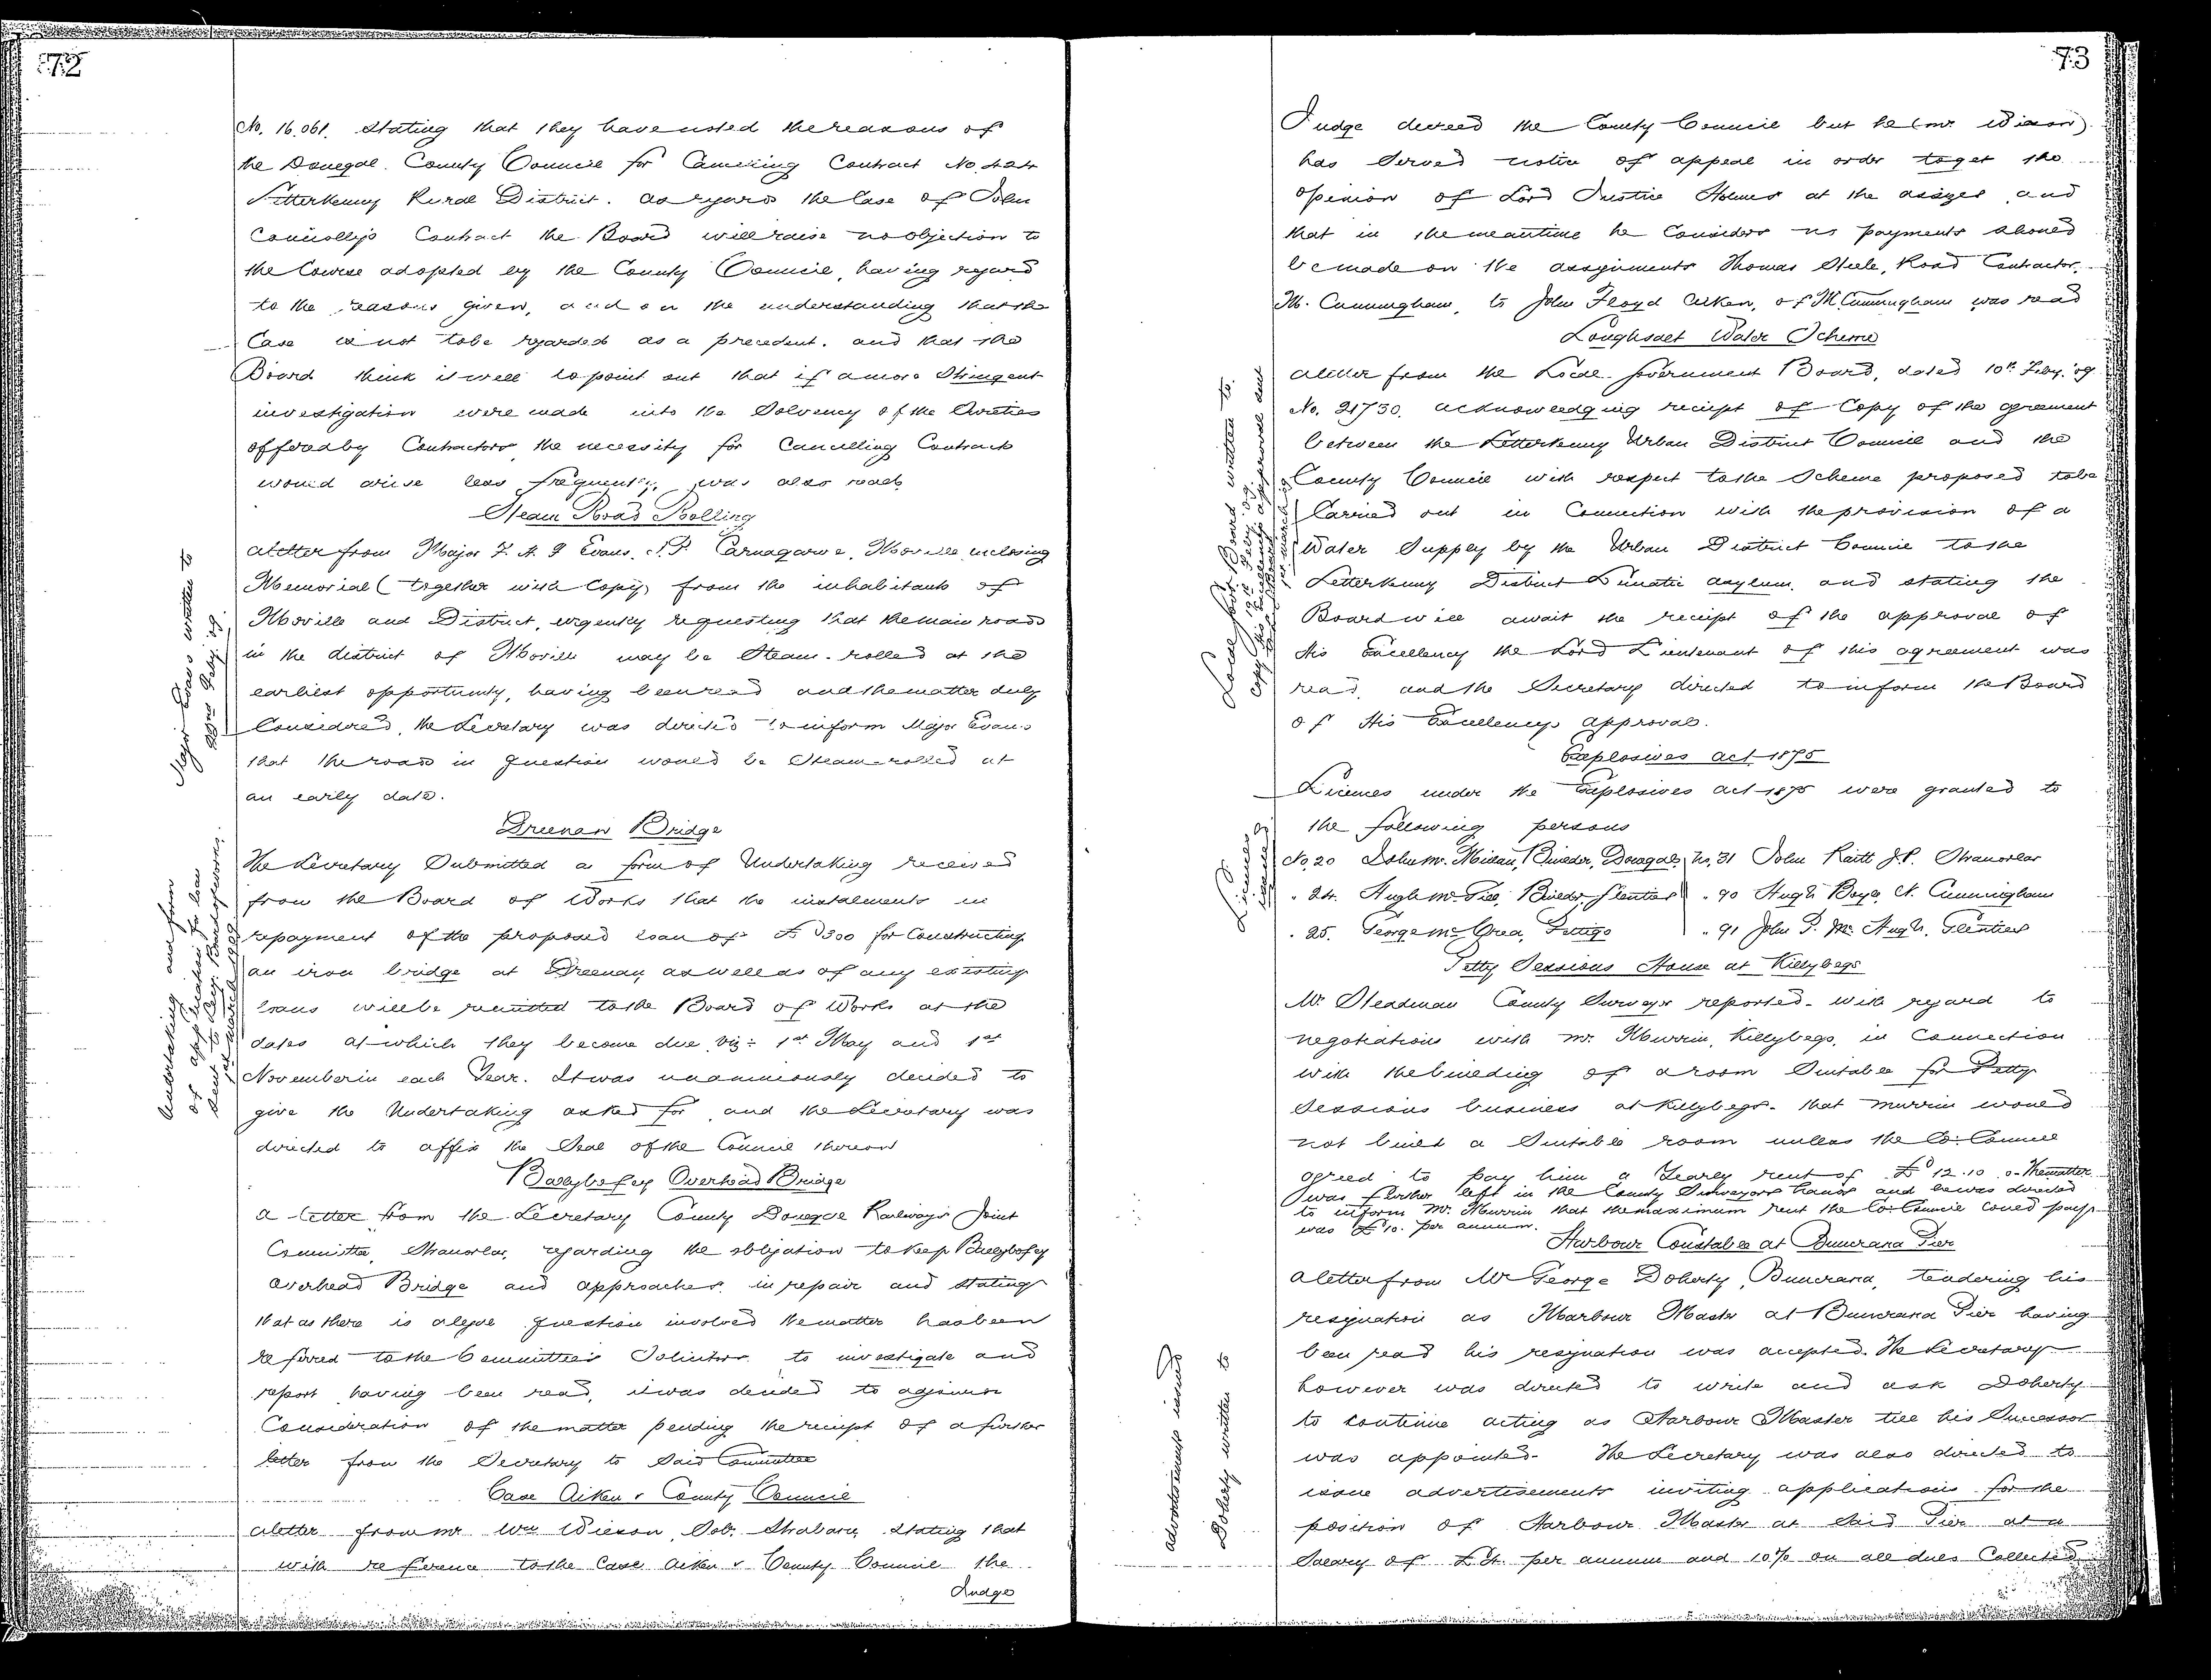 72
No. 16.061. Stating that they have noted the reasons of
the Donegal County Council for Cancelling Contract No. 424
Letterkenny Rural District. As regards the Case of John
Connolly's Contract the Board will raise no objection to
the Course adopted by the County Council, having regard
to the reasons given, and on the understanding that the
Case is not to be regarded as a precedent. and that the
Board think it well to point out that if a more Stringent
investigation were made into the Solvency of the Sureties
offered by Contractors the necessity for Cancelling Contracts
would arise less frequently, was also read.
Steam Road Rolling
A letter from Major Evans, J.P. Carnagarve, Moville, inclosing
Memorial (together with Copy) from the inhabitants of
Moville and District, urgently requesting that the main roads
in the district of Moville may be Steam-rolled at the
earliest opportunity, having been read and the matter duly
Considered, the Secretary was directed to inform Major Evans
that the roads in question would be Steam-rolled at
an early date.
Major Evans written to
22nd Feby. '09.
Dreenan Bridge
The Secretary Submitted a form of Undertaking received
from the Board of Works that the instalments in
repayment of the proposed loan of £300 for Constructing
an iron bridge at Dreenan, as well as of any existing
loans will be remitted to the Board of Works at the
dates at which they become due viz: 1st May and 1st
November in each Year. It was unanimously decided to
give the Undertaking asked for and the Secretary was
directed to affix the Seal of the Council thereon
Undertaking and form
of application for loan
Sent to Secy. Board of Works
Ballybofey Overhead Bridge
A letter from the Secretary County Donegal Railways Joint
Committee, Stranorlar, regarding the obligation to keep Ballybofey
Overhead Bridge and approaches in repair and stating
that as there is a legal question involved the matter has been
referred to the Committee's Solicitors to investigate and
report having been read, it was decided to adjourn
Consideration of the matter pending the receipt of a further
letter from the Secretary to Said Committee
Case Aiken v County Council
A letter from Mr Wm Wilson, Sol. Strabane, Stating that
with reference to the Case Aiken v County Council the
Judge
73
Judge decreed the County Council but he (Mr. Wilson)
has Served notice of appeal in order to get the
opinion of Lord Justice Holmes at the assizes and
that in the meantime he Considers no payments should
be made on the assignments Thomas Steele, Road Contractor,
Mt. Cunningham, to John Floyd Aiken, of Mt. Cunningham was read
Loughsalt Water Scheme
A letter from the Local Government Board, dated 10th Feby. '09
No. 21730. acknowledging receipt of Copy of the agreement
between the Letterkenny Urban District Council and the
County Council with respect to the Scheme proposed to be
Carried out in Connection with the provision of a
Water Supply by the Urban District Council to the
Letterkenny District Lunatic Asylum, and stating the
Board will await the receipt of the approval of
His Excellency the Lord Lieutenant of this agreement was
read, and the Secretary directed to inform the Board
of His Excellency's approval.
Local Govt. Board written to
Explosives Act 1875
Licenses under the Explosives Act 1875 were granted to
the following persons
No. 20 John Mc. Milan, Builder, Donegal No. 31 John Raitt J.P. Stranorlar
" 24. Hugh Mc. Gill, Builder, Glenties " 90 Hugh Boyce, N. Cunningham
" 25. George McCrea, Pettigo " 91 John P. Mc Hugh, Glenties
Licenses
Petty Sessions House at Killybegs
Mr Steadman County Surveyor reported - with regard to
negotiations with Mr. Murrin, Killybegs, in Connection
with the building of a room Suitable for Petty
Sessions business at Killybegs - that Murrin would
not build a Suitable room unless the Co: Council
agreed to pay him a Yearly rent of £12.10.0 - The matter
was further left in the County Surveyor's hands and he was directed
to inform Mr. Murrin that the maximum rent the Co: Council could pay
was £10. per annum.
Harbour Constable at Buncrana Pier
A letter from Mr George Doherty, Buncrana, tendering his
resignation as Harbour Master at Buncrana Pier having
been read his resignation was accepted. The Secretary
however was directed to write and ask Doherty
to continue acting as Harbour Master till his Successor
was appointed. The Secretary was also directed to
issue advertisements inviting applications for the
position of Harbour Master at Said Pier at a
Salary of £4. per annum and 10% on all dues Collected
Advertisements issued
Doherty written to